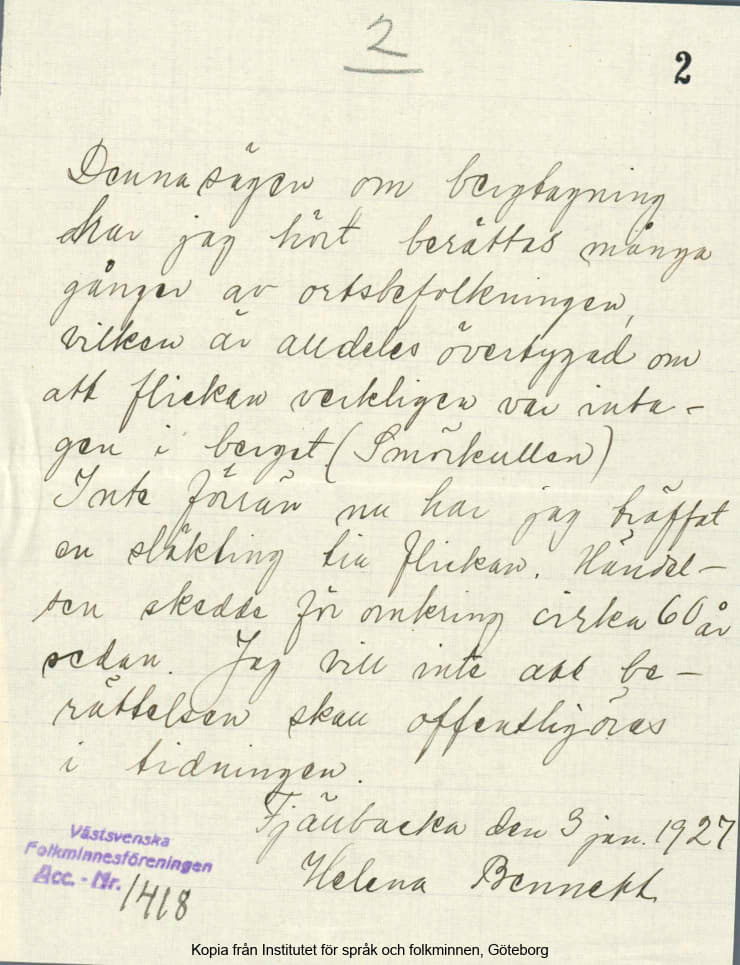 2
2
Denna sägen om bergtagning
har jag hört berättas många
gånger av ortsbefolkningen,
vilken är alldeles övertygad om
att flickan verkligen var inta-
gen i berget (Smörkullen)
Inte förrän nu har jag träffat
en släkting till flickan. Händel-
sen skedde för omkring cirka 60 år
sedan. Jag vill inte att be-
rättelsen skall offentligöras
i tidningen.
Fjällbacka den 3 jan. 1927
Helena Bennett
Västsvenska
Folkminnesföreningen
Acc. - Nr. 1418
Kopia från Institutet för språk och folkminnen, Göteborg